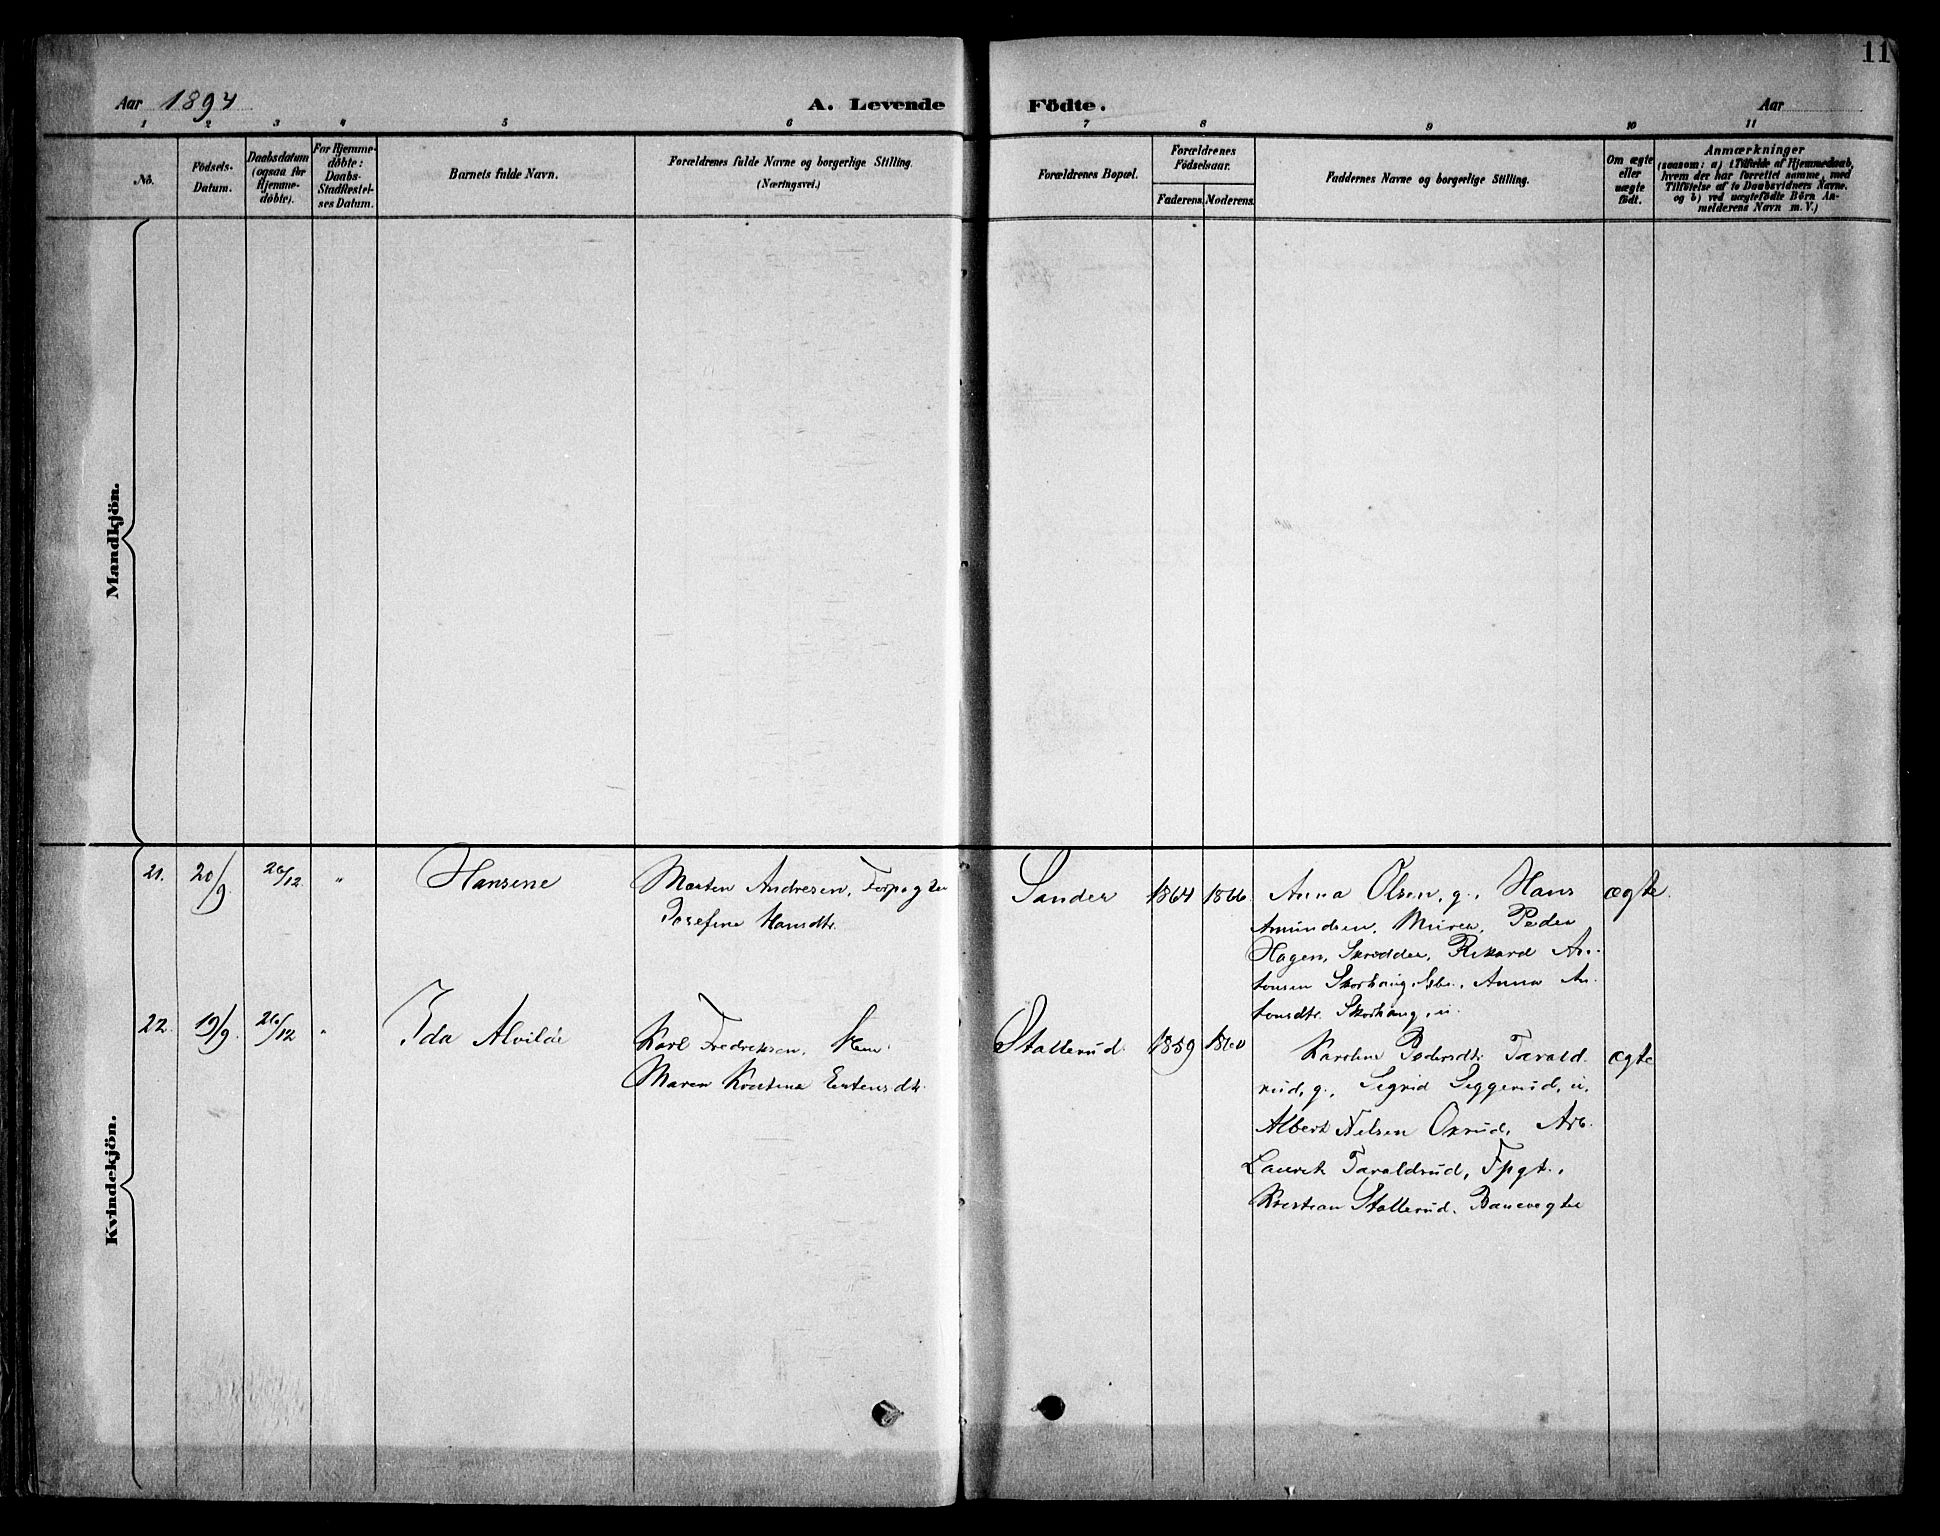 11
Aar 1894 A. Levende Födte. Aar
1 2 3 4 5 6 7 8 9 10 11
No.
Födsels-
Datum.
Daabsdatum
(ogsaa for
Hjemme-
döbte).
For Hjemme-
döbte:
Daabs-
Stadfæstel-
ses Datum.
Barnets fulde Navn.
Forældrenes fulde Navne og borgerlige Stilling.
(Næringsvei.)
Forældrenes Bopæl.
Forældrenes
Födselsaar.
Faderens. Moderens.
Faddernes Navne og borgerlige Stilling.
Om ægte
eller
uægte
födt.
Anmærkninger
(saasom: a) i Tilfælde af Hjemmedaab,
hvem der har forrettet samme, med
Tilföielse af to Daabsvidners Navne.
og b) ved uægtefödte Börn An-
melderens Navn m. V.)
Mandkjön.
Kvindekjön.
21. 20/9 26/12 " Hansine Morten Andresen, Forpagter Sander 1864 1866 Anna Olsen, g., Hans ægte.
Josefine Hansdtr. Amundsen, Murer, Peder
Hagen, Skrædder, Rikard An-
tonsen Skorhaug, Anna An-
tonsdtr. Skorhaug, u.
22. 19/9 26/12 " Ida Alvilde Karl Fredriksen, Stallerud 1859 1860 Karoline Pedersdtr. Tarald- ægte
Maren Kristina rud, g., Sigrid Seggerud, u,
Albert Nilsen Oxrud, Arb.
Laurits Taraldrud, Fpgt.,
Kristian Stallerud, Banevogter